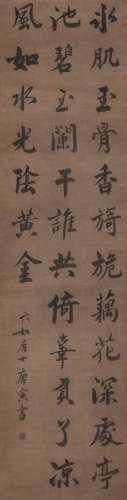 冰肌玉骨香旖旎藕花深處亭
池碧玉闌干誰共倚辜負了涼
風如水光陰黃金
六如居士唐寅書